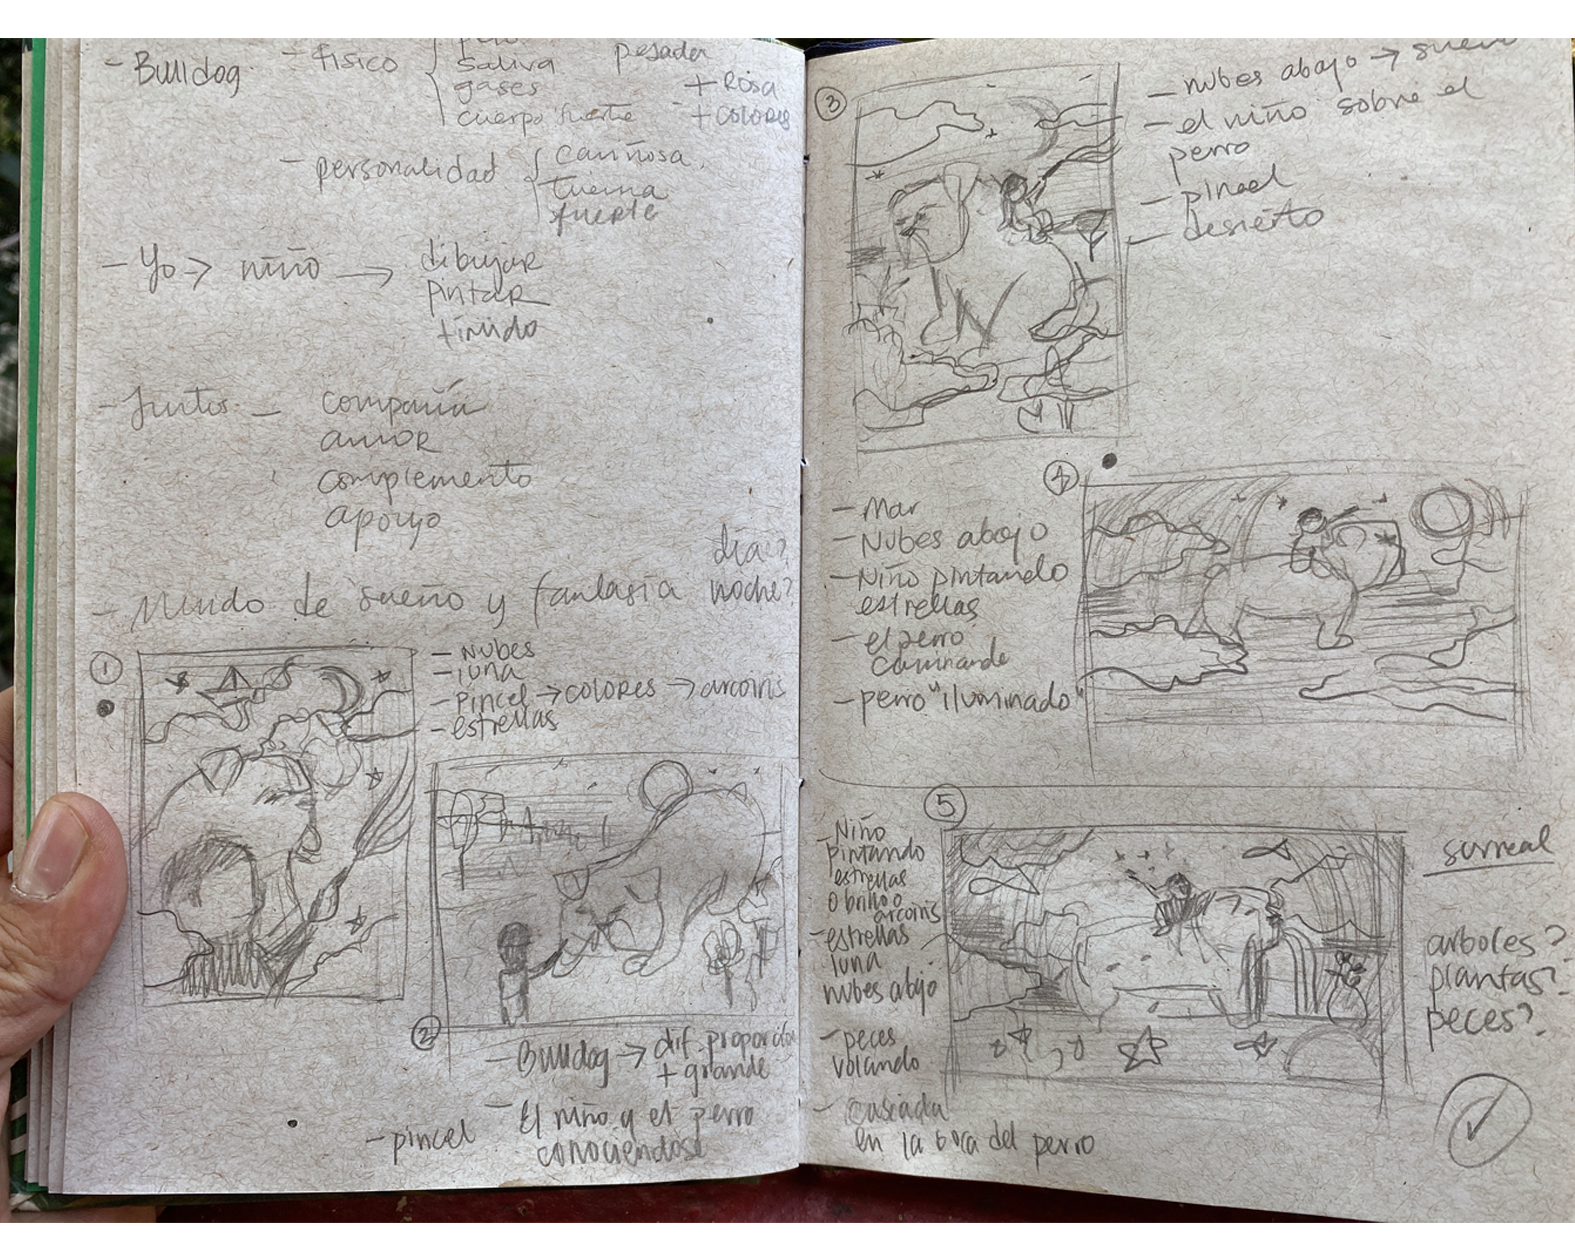 - Bulldog - físico { pelo
saliva
gases
cuerpo fuerte
pesada
+ Rosa
+ COLORES
- personalidad { cariñosa
tierna
fuerte
- Yo → niño → dibujar
pintar
tímido
- Juntos - compañía
amor
complemento
apoyo
- Mundo de sueño y fantasía
día?
noche?
1
- NUBES
- luna
- PINCEL → COLORES → arcoiris
- estrellas
2
- Bulldog → dif. proporción
+ grande
- El niño y el perro
conociendose
- pincel
3
- nubes abajo → sueño
- el niño sobre el
perro
- pincel
- desierto
4
- Mar
- Nubes abajo
- Niño pintando
estrellas
- el perro
caminando
- perro "iluminado"
5
- Niño
pintando
estrellas
o brillo o
arcoiris
- estrellas
luna
nubes abajo
- peces
volando
- Cascada
en la boca del perro
surreal
arboles?
plantas?
peces?